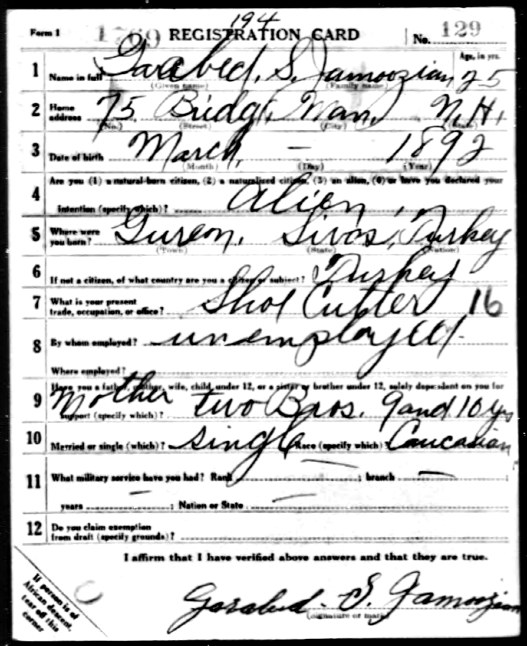 194
Form 1 1769 REGISTRATION CARD No. 129
Age, in yrs.
1 Name in full Garabed. S. Jamoozian 25
(Given name) (Family name)
2 Home address 75 Bridge, Man, N.H.
(No.) (Street) (City) (State)
3 Date of birth March, — 1892
(Month) (Day) (Year)
Are you (1) a natural-born citizen, (2) a naturalized citizen, (3) an alien, (4) or have you declared your
4 intention (specify which)? Alien,
5 Where were you born? Gureon, Sivos, Turkey
(Town) (State) (Nation)
6 If not a citizen, of what country are you a citizen or subject? Turkey
7 What is your present trade, occupation, or office? Shoe Cutter 16
8 By whom employed? unemployed.
Where employed?
Have you a father, mother, wife, child under 12, or a sister or brother under 12, solely dependent on you for
9 support (specify which)? Mother two Bros. 9 and 10 yrs
10 Married or single (which)? single Race (specify which)? Caucasian
11 What military service have you had? Rank — ; branch —
years — ; Nation or State —
12 Do you claim exemption from draft (specify grounds)?
I affirm that I have verified above answers and that they are true.
Garabed. S. Jamoozian
(Signature or mark)
If person is of
African descent,
tear off this
corner